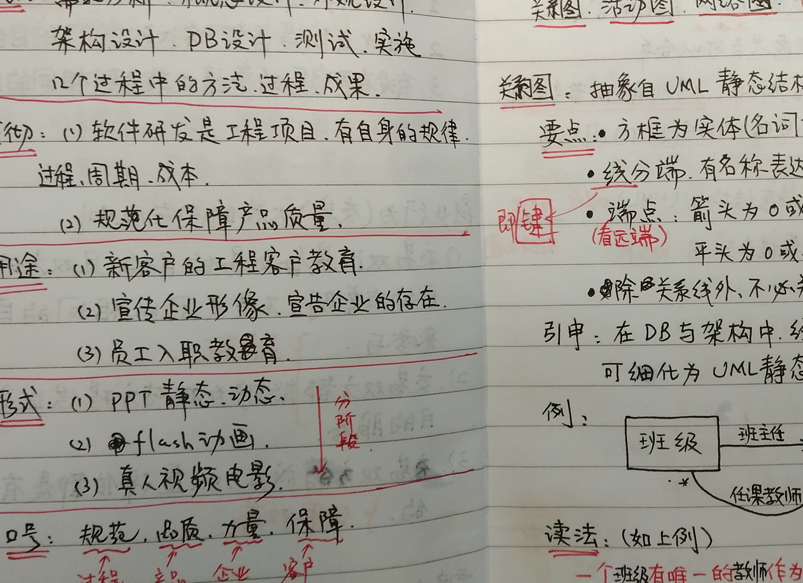 架构设计、DB设计、测试、实施
12个过程中的方法、过程、成果.
彻：(1) 软件研发是工程项目、有自身的规律.
过程、周期、成本.
(2) 规范化保障产品质量.
用途：(1) 新客户的工程客户教育.
(2) 宣传企业形像、宣告企业的存在.
(3) 员工入职教育.
形式：(1) PPT 静态、动态.
(2) flash动画.
(3) 真人视频电影.
分阶段
口号：规范、品质、力量、保障.
过程 产品 企业 客户
关系图、活动图、网络图
关系图：抽象自 UML 静态结构
要点：• 方框为实体(名词
• 线分端、有名称表达
即键
• 端点：箭头为0或
(看远端)
平头为0或
• 除关系线外、不必
引申：在DB与架构中、
可细化为 UML静态
例：
班级
班主任
任课教师
*
读法：(如上例)
一个班级有唯一的教师作为